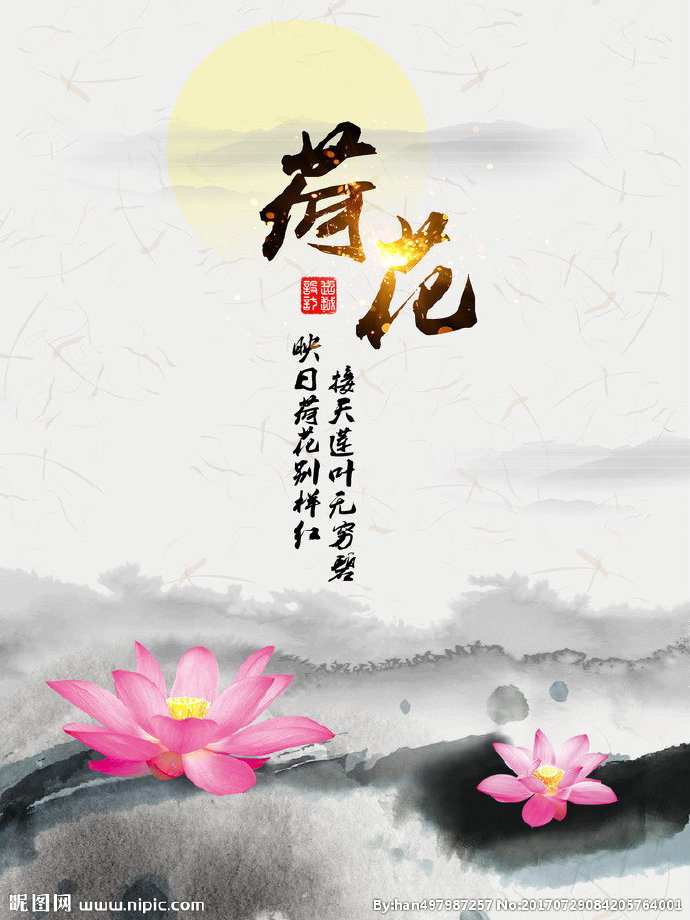 荷花
超越设计
接天莲叶无穷碧
映日荷花别样红
昵图网 www.nipic.com
By:han497987257 No:20170729084205764001